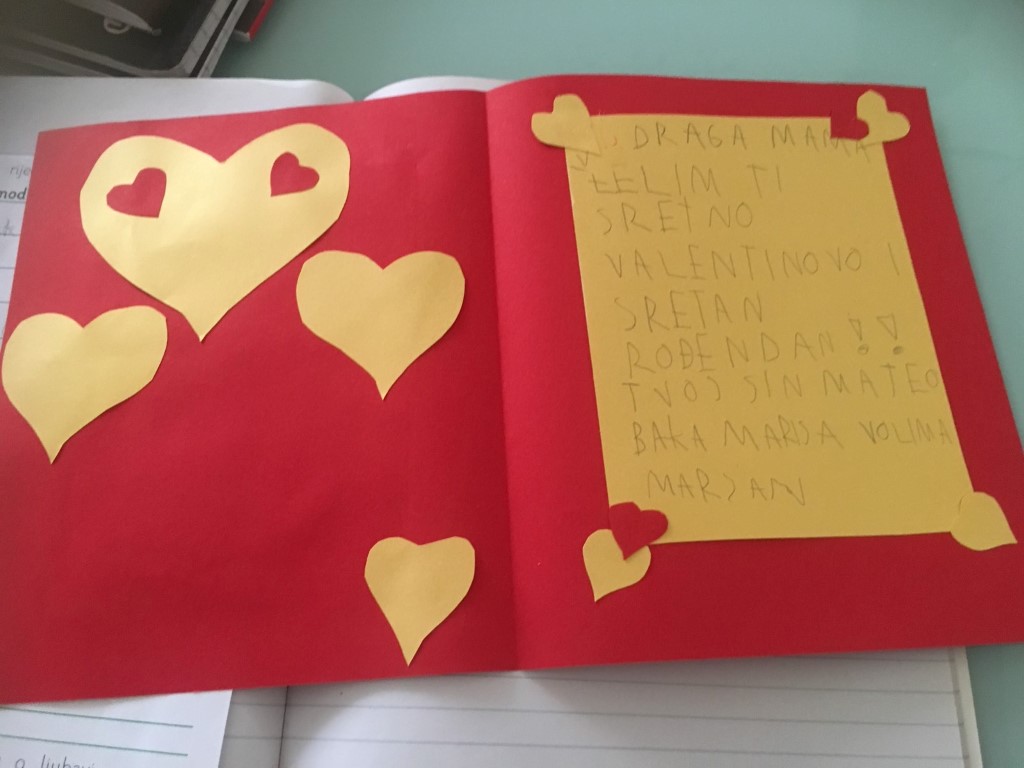 DRAGA MAMA
ŽELIM TI
SRETNO
VALENTINOVO I
SRETAN
ROĐENDAN !!
TVOJ SIN MATEO
BAKA MARIJA VOLIMA
MARJAN
nje
mod
o ljubavi